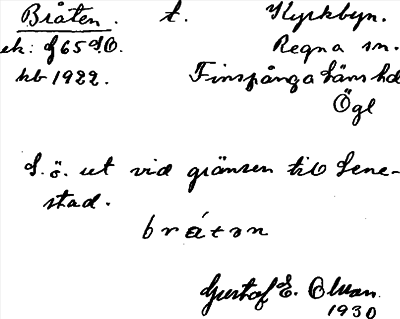 Bråten. t. Kyrkbyn.
ek: J65 SO. Regna sn.
kb 1922. Finspånga läns hd
Ögl
S. ö. ut vid gränsen till Sene-
stad.
bråtən
Gustaf E. Olsson
1930